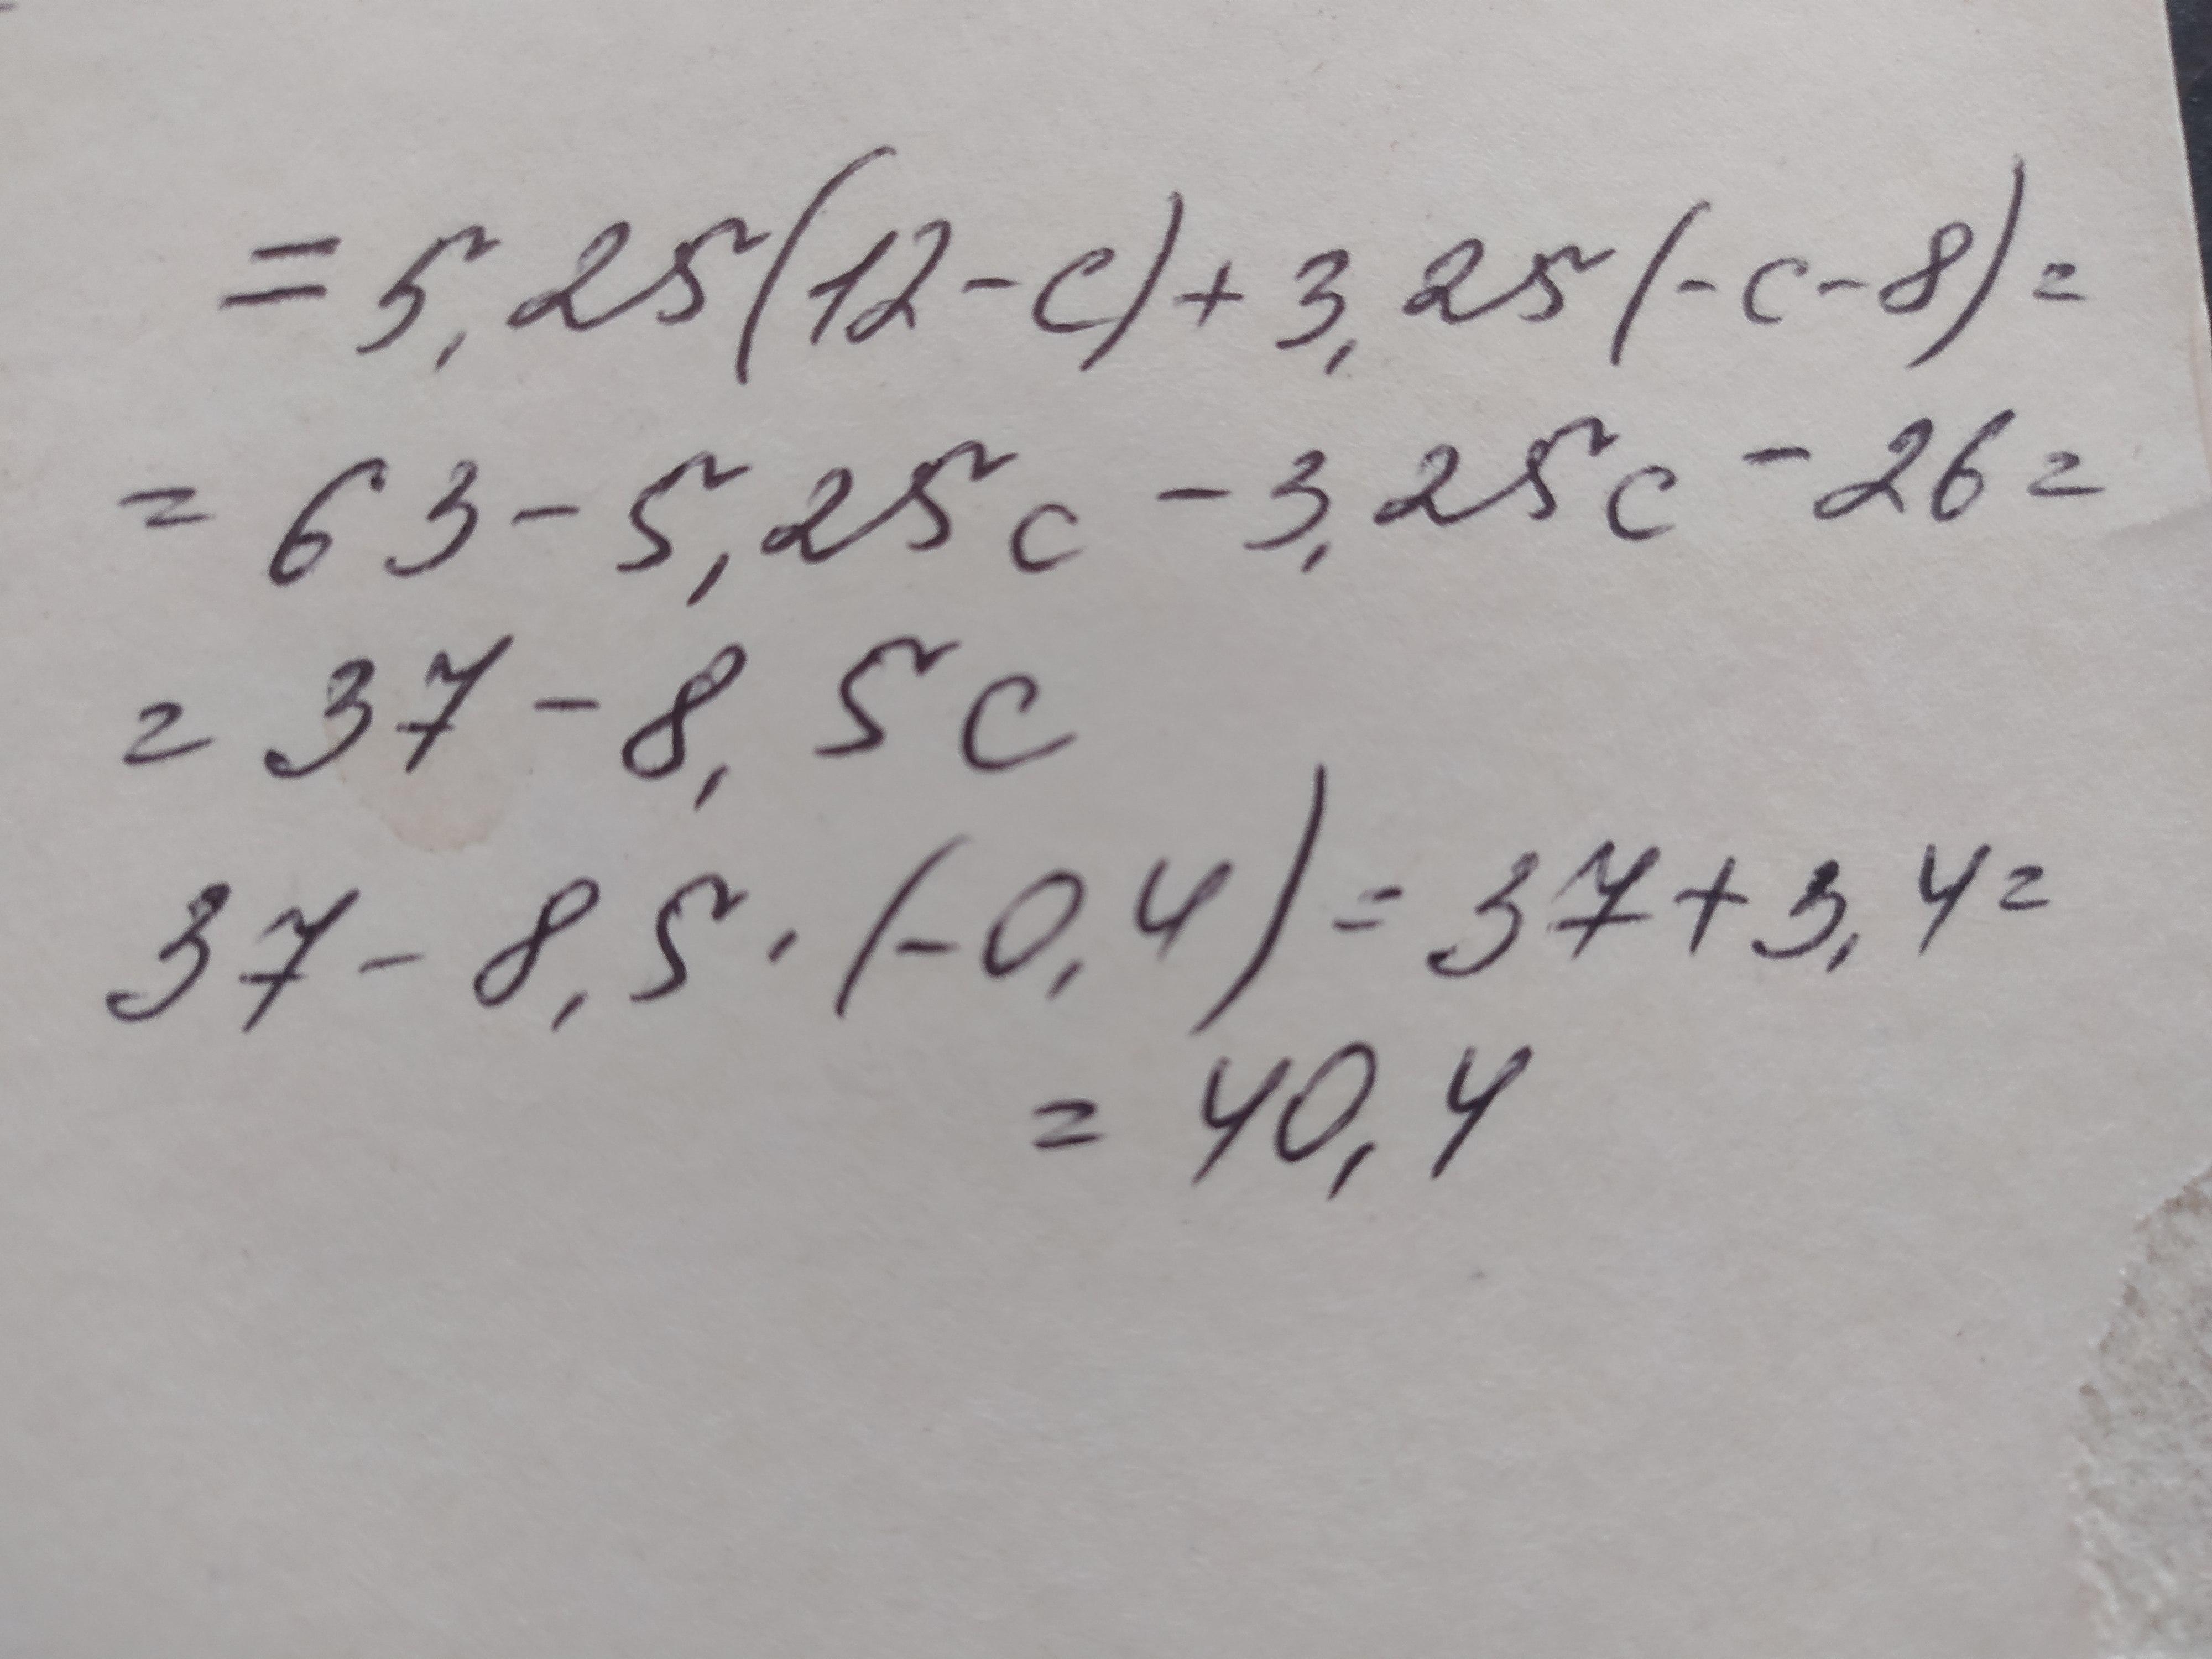 = 5,25(12-c)+3,25(-c-8)=
= 63-5,25c-3,25c-26=
= 37-8,5c
37-8,5·(-0,4)=37+3,4=
= 40,4